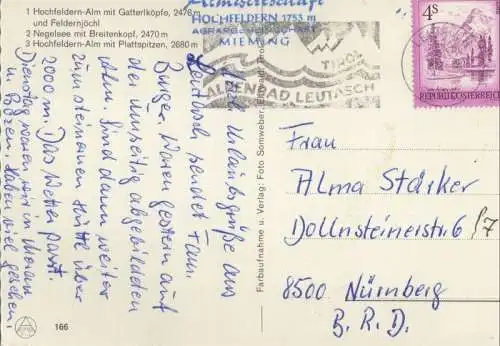 1 Hochfeldern-Alm mit Gatterlköpfe, 2476 m
und Feldernjöchl
2 Negelsee mit Breitenkopf, 2470 m
3 Hochfeldern-Alm mit Plattspitzen, 2680 m
HOCHFELDERN 1753 m
AGRARGEMEINSCHAFT
MIEMING
TIROL
ALPENBAD LEUTASCH
4S
REPUBLIK ÖSTERREICH
Viele Urlaubsgrüße aus
Leutasch sendet Fam.
Burger. Waren gestern auf
der umseitig abgebildeten
Alm. Sind dann weiter
zum steinernen Hüttl über
2000 m. Das Wetter passt.
Dienstag waren wir in Meran
u. Bozen. Haben viel gesehen.
Farbaufnahme u. Verlag: Foto Somweber,
Frau
Alma Stärker
Dollnsteinerstr. 6
8500 Nürnberg
B.R.D.
166